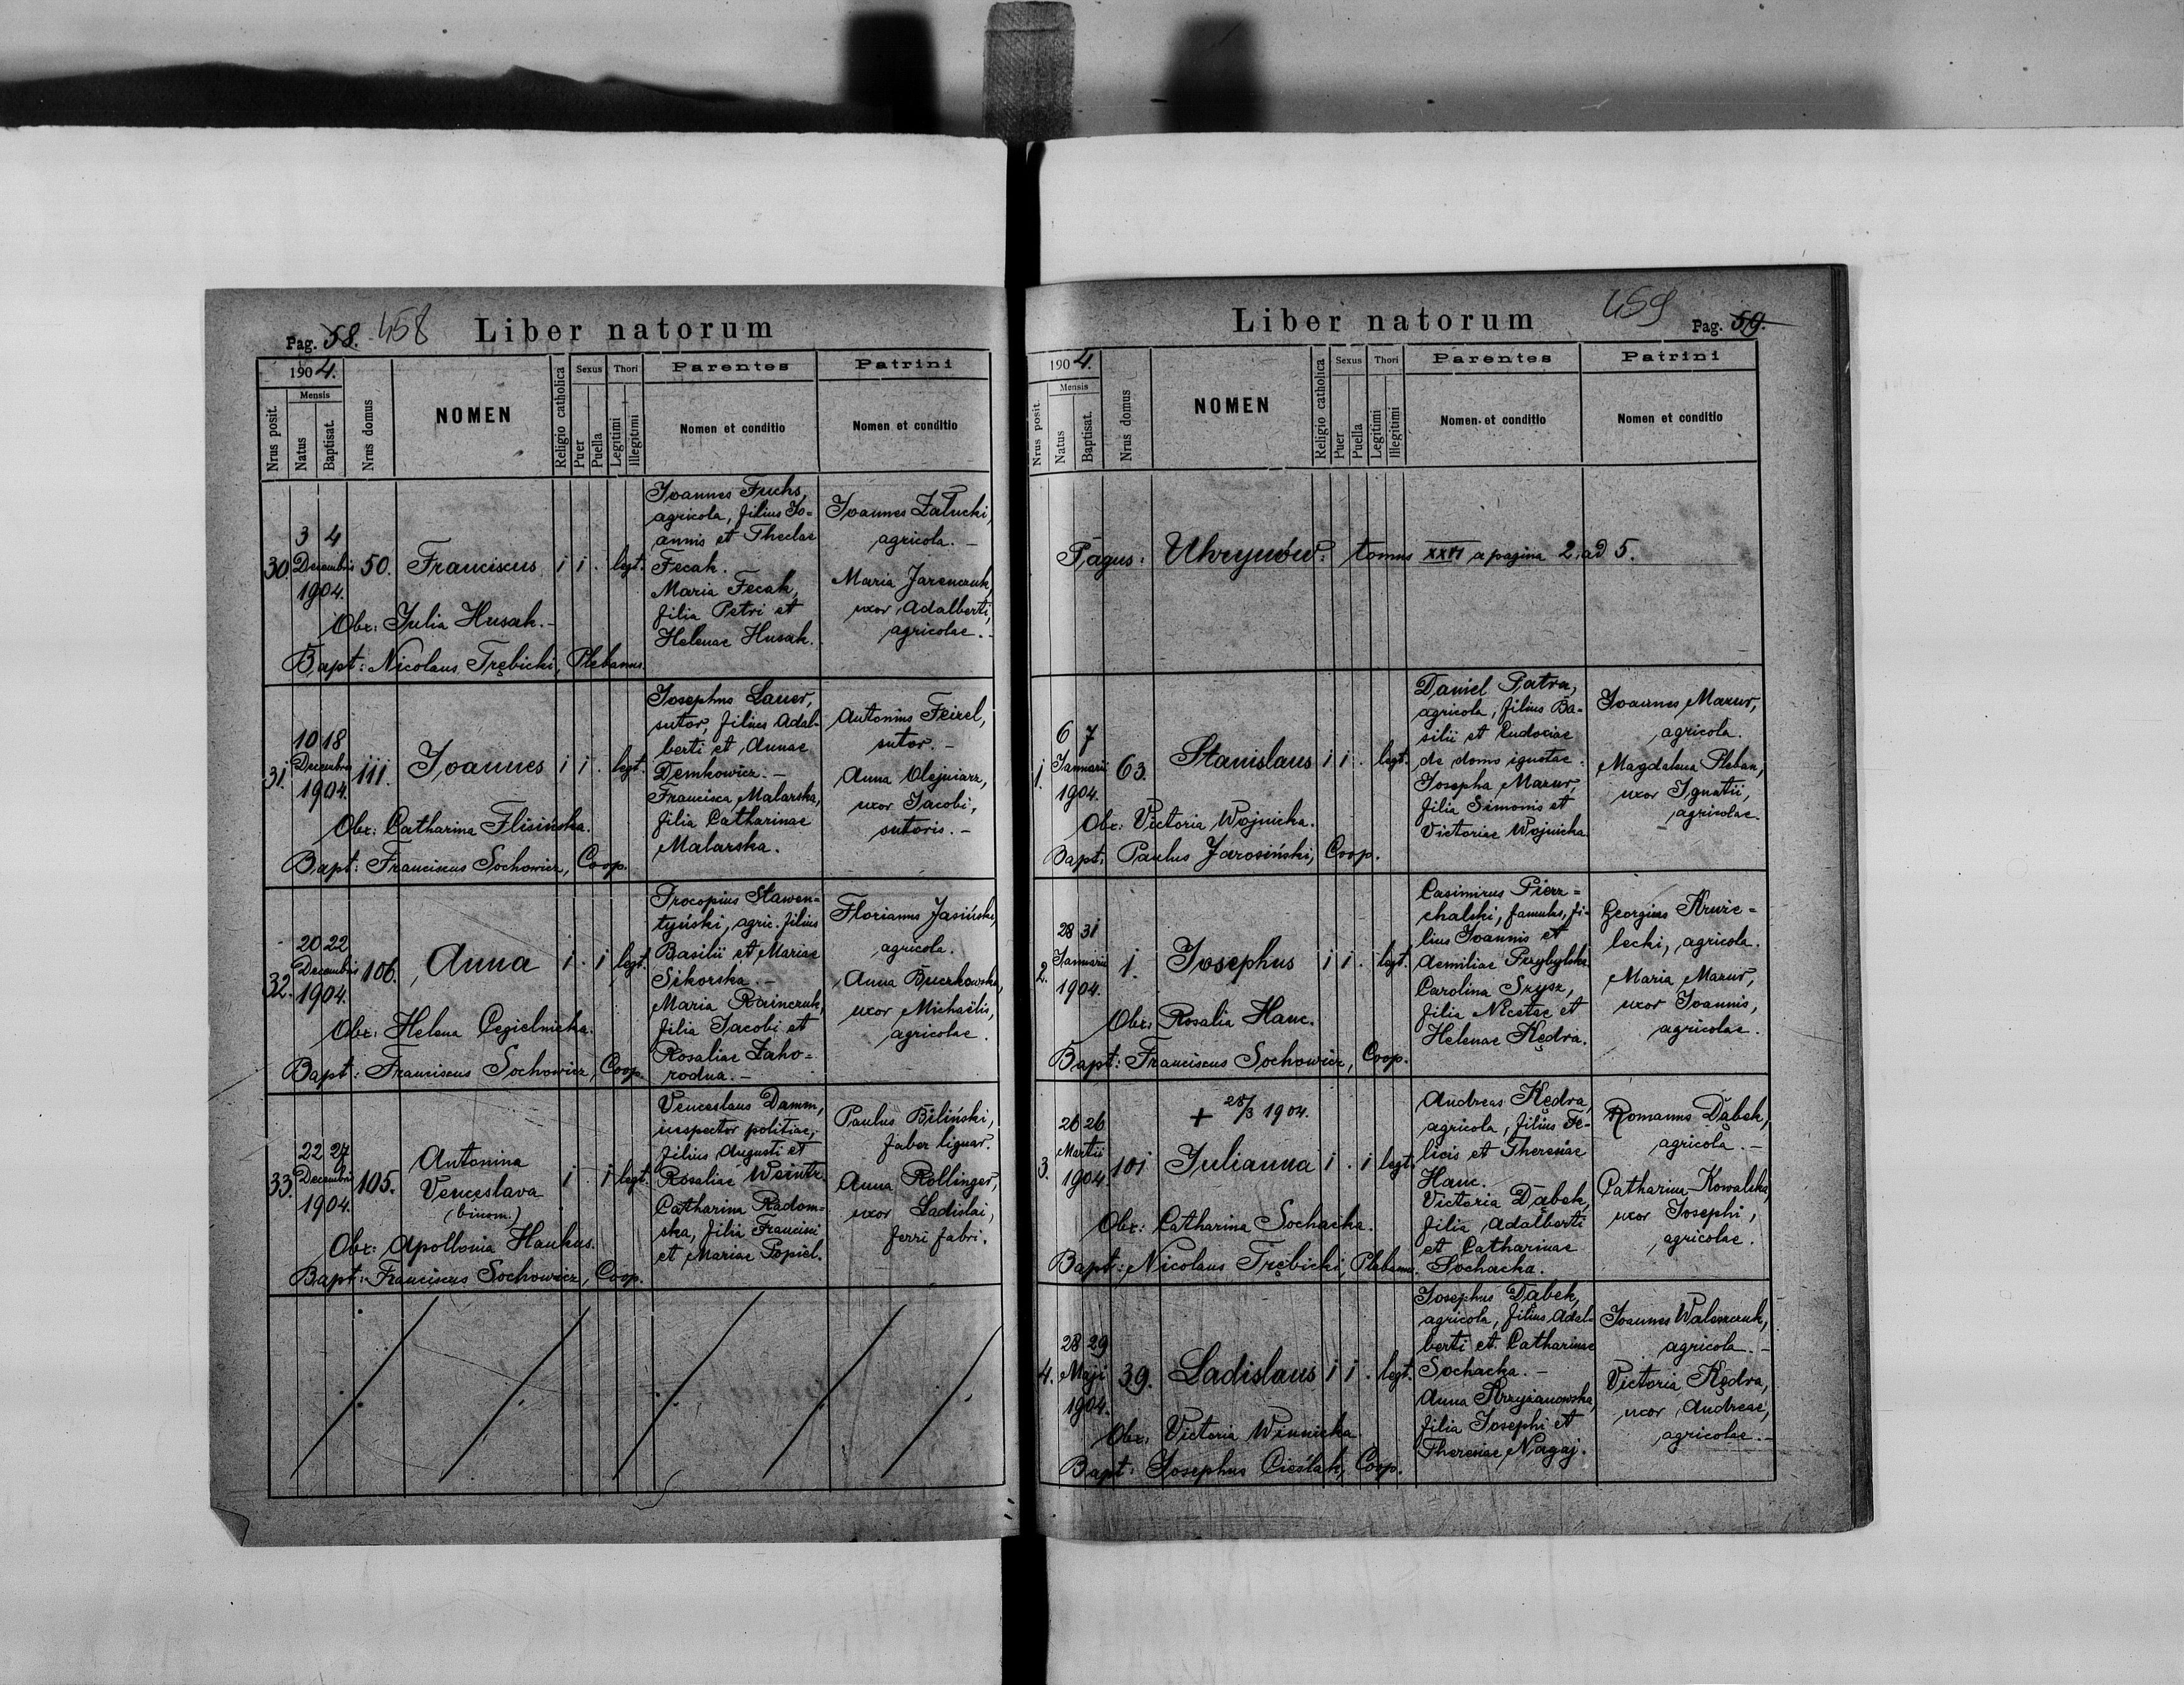 Pag. 58. 458 Liber natorum
1904.
Nrus posit.
Mensis
Natus
Baptisat.
Nrus domus
NOMEN
Religio catholica
Sexus
Puer
Puella
Thori
Legitimi
Illegitimi
Parentes
Nomen et conditio
Patrini
Nomen et conditio
30. 3 4 Decembris 1904. 50. Franciscus i i . legt.
Obx: Julia Husak.
Bapt: Nicolaus Trębicki, Plebanus.
Joannes Fuchs,
agricola, filius Jo-
annis et Theclae
Fecak.
Maria Fecak,
filia Petri et
Helenae Husak.
Joannes Załucki,
agricola.
Maria Jarenczuk,
uxor Adalberti,
agricolae.
31. 10 18 Decembris 1904. 111. Joannes i i . legt.
Obx: Catharina Flisińska.
Bapt: Franciscus Sochowicz, Coop.
Josephus Lauer,
sutor, filius Adal-
berti et Annae
Demkowicz.
Francisca Malarska,
filia Catharinae
Malarska.
Antonius Feirel,
sutor.
Anna Olejniarz,
uxor Jacobi,
sutoris.
32. 20 22 Decembris 1904. 106. Anna i . i legt.
Obx: Helena Cegielnicka.
Bapt: Franciscus Sochowicz, Coop.
Procopius Stawen-
tyński, agric. filius
Basilii et Mariae
Sikorska.
Maria Rainczuk,
filia Jacobi et
Rosaliae Zaho-
rodna.
Florianus Jasiński,
agricola.
Anna Buczkowska,
uxor Michaëlis,
agricolae.
33. 22 27 Decembris 1904. 105. Antonina
Venceslava
(binom.) i . i legt.
Obx: Apollonia Hankus.
Bapt: Franciscus Sochowicz, Coop.
Venceslaus Damm,
inspector politiae,
filius Augusti et
Rosaliae Weintr.
Catharina Radom-
ska, filia Francisci
et Mariae Popiel.
Paulus Biliński,
faber lignar.
Anna Rollinger,
uxor Ladislai,
ferri fabri.
Liber natorum 459 Pag. 59.
1904.
Nrus posit.
Mensis
Natus
Baptisat.
Nrus domus
NOMEN
Religio catholica
Sexus
Puer
Puella
Thori
Legitimi
Illegitimi
Parentes
Nomen et conditio
Patrini
Nomen et conditio
Pagus: Uhrynów. tomus XXVI a pagina 2. ad 5.
1. 6 7 Januarii 1904. 63. Stanislaus i i . legt.
Obx: Victoria Wojnicka.
Bapt: Paulus Jarosiński, Coop.
Daniel Patra,
agricola, filius Ba-
silii et Eudociae
de domo ignotae.
Josepha Mazur,
filia Simonis et
Victoriae Wojnicka.
Joannes Mazur,
agricola.
Magdalena Pleban,
uxor Ignatii,
agricolae.
2. 28 31 Januarii 1904. 1. Josephus i i . legt.
Obx: Rosalia Hanc.
Bapt: Franciscus Sochowicz, Coop.
Casimirus Pierz-
chalski, famulus, fi-
lius Joannis et
Aemiliae Przybylska.
Carolina Szysz,
filia Nicetae et
Helenae Kędra.
Georgius Krule-
lecki, agricola.
Maria Mazur,
uxor Joannis,
agricolae.
3. 26 26 Martii 1904. 101 + 28/3 1904.
Julianna i . i legt.
Obx: Catharina Sochacka.
Bapt: Nicolaus Trębicki, Plebanus.
Andreas Kędra,
agricola, filius Fe-
licis et Theresiae
Hanc.
Victoria Dąbek,
filia Adalberti
et Catharinae
Sochacka.
Romanus Dąbek,
agricola.
Catharina Kowalska,
uxor Josephi,
agricolae.
4. 28 29 Maji 1904. 39. Ladislaus i i . legt.
Obx: Victoria Winnicka
Bapt: Josephus Cieślak, Coop.
Josephus Dąbek,
agricola, filius Adal-
berti et Catharinae
Sochacka.
Anna Krzyżanowska,
filia Josephi et
Theresiae Nagaj.
Joannes Walenczuk,
agricola.
Victoria Kędra,
uxor Andreae,
agricolae.